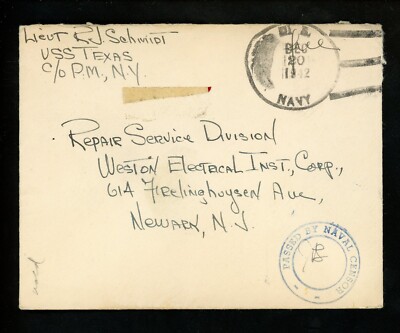 Lieut R.J. Schmidt
USS Texas
c/o P.M., N.Y.
U.S.
DEC
20
1942
NAVY
Repair Service Division
Weston Electrical Inst., Corp.,
614 Frelinghuysen Ave,
Newark, N.J.
PASSED BY NAVAL CENSOR